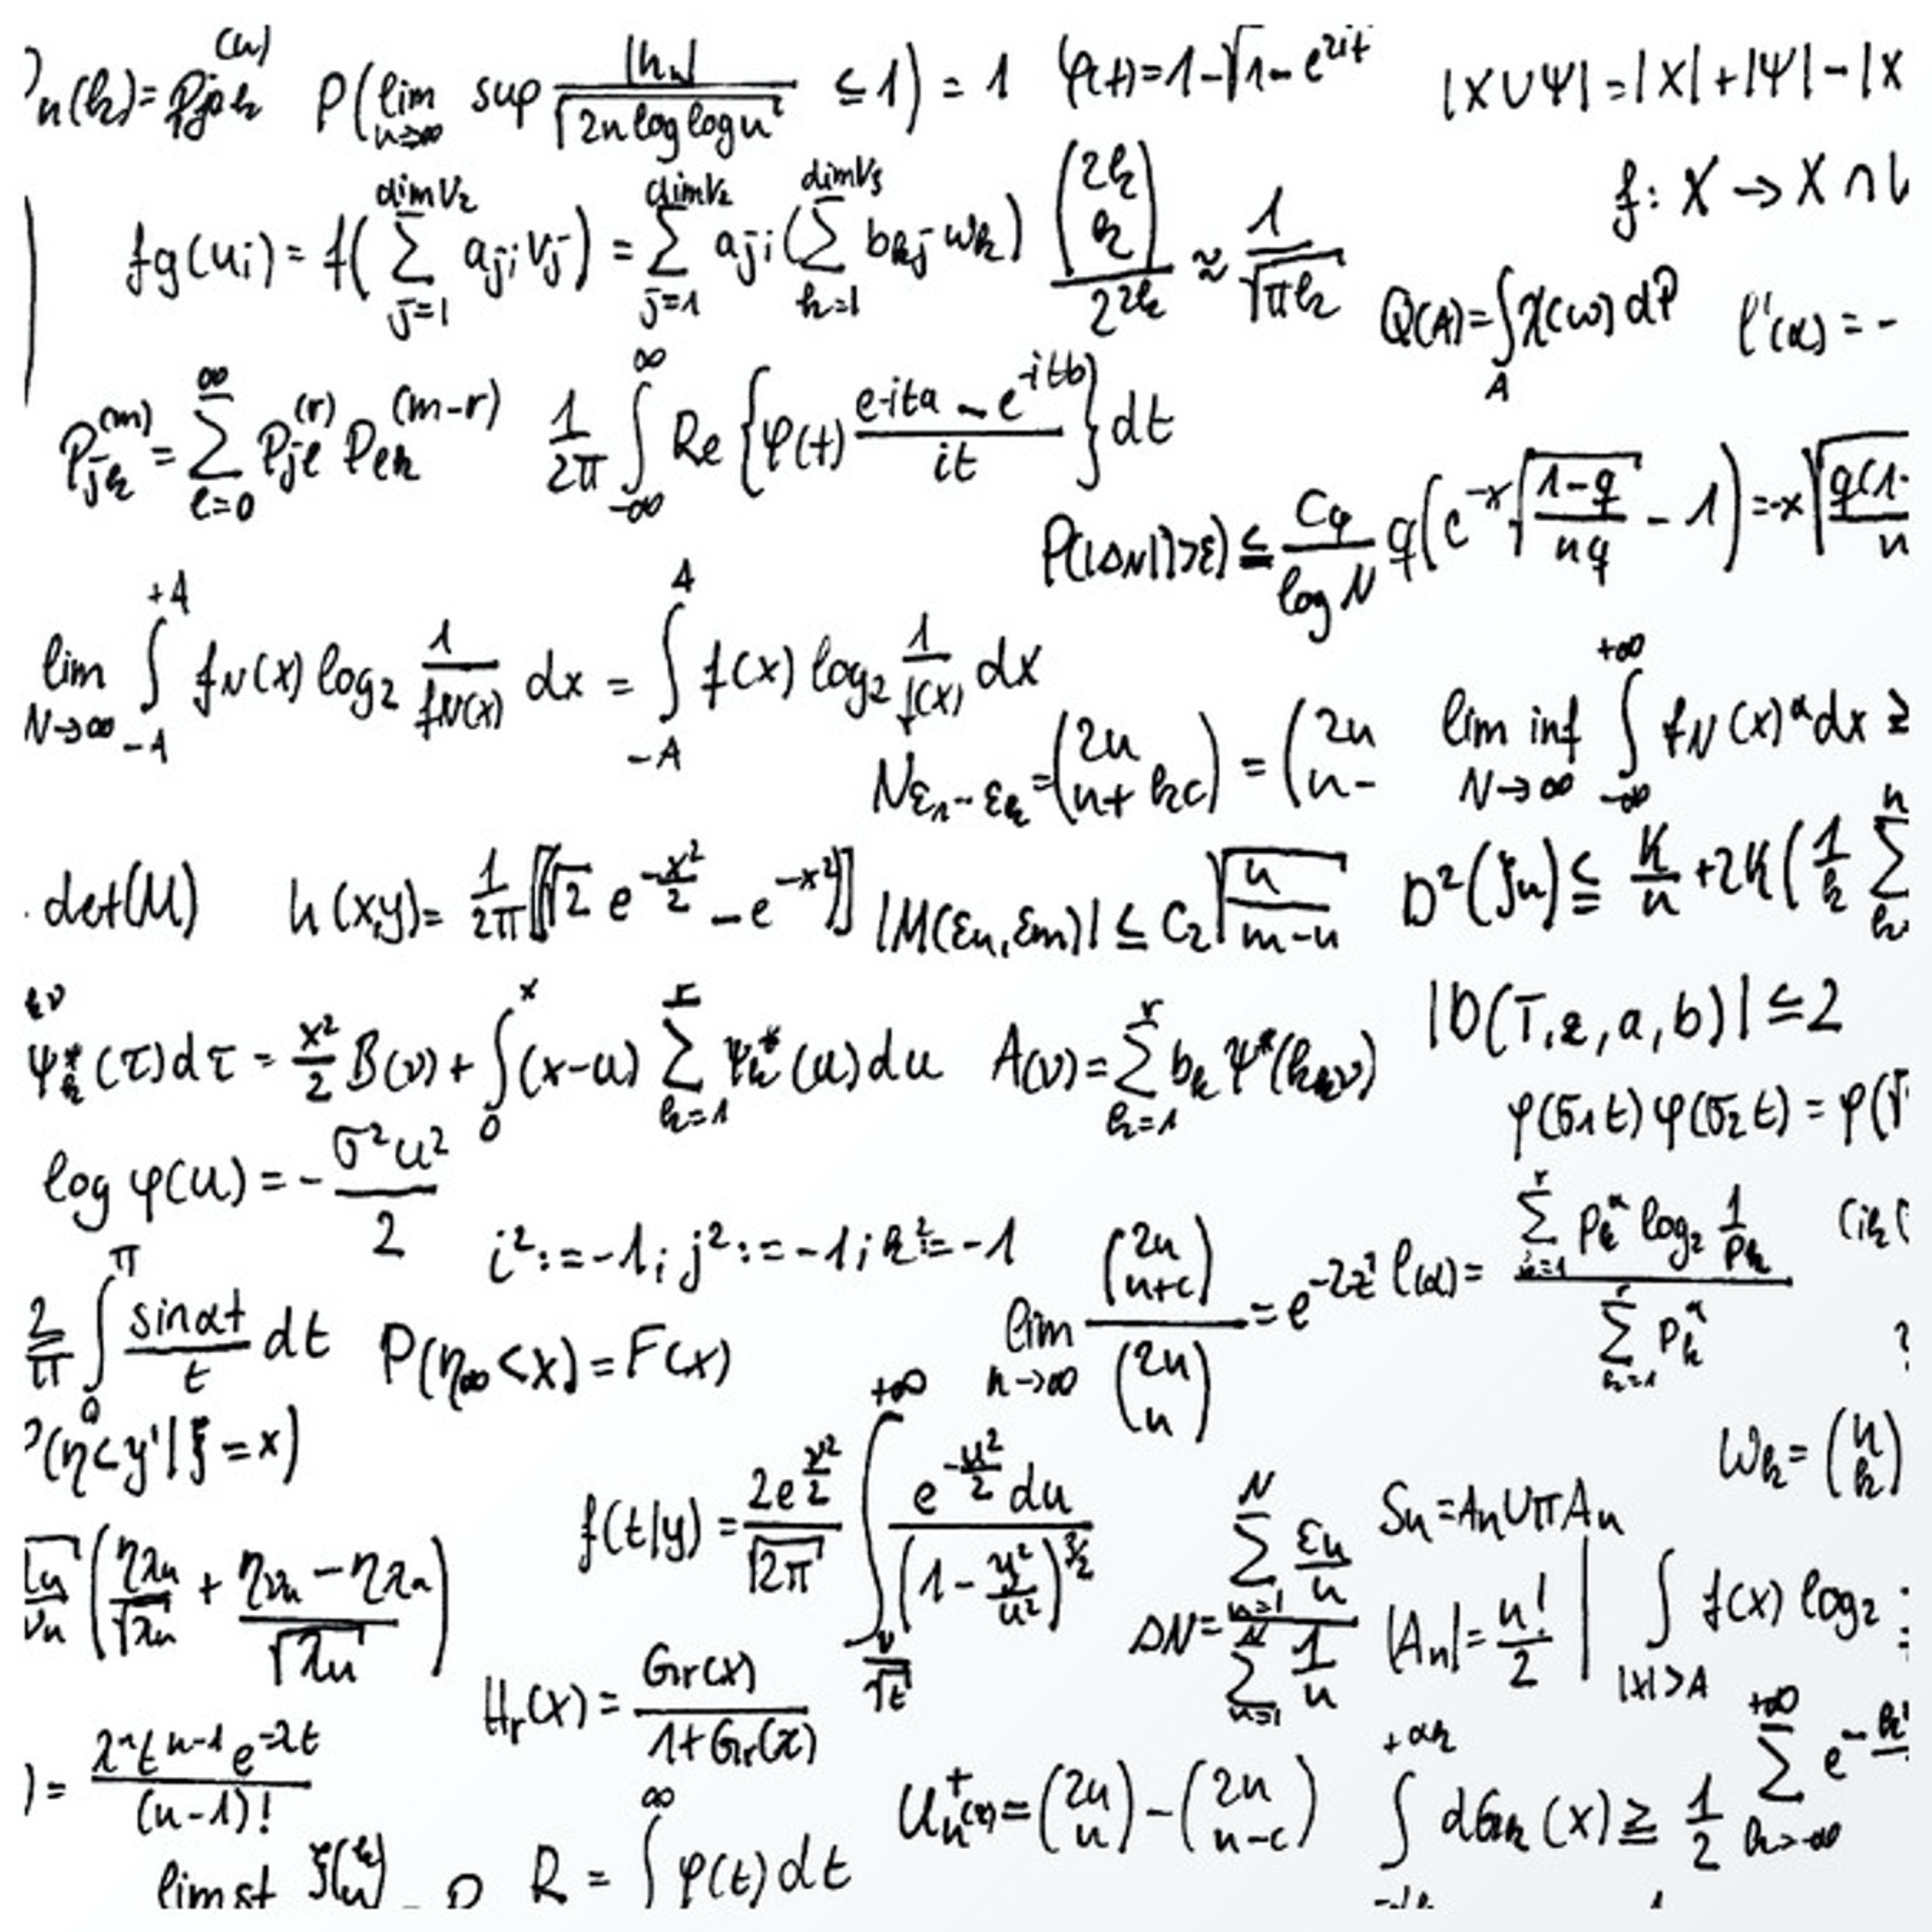 n(k) = P_jk^(n)   P(lim_{n→∞} sup |h_n| / √(2n log log n) ≤ 1) = 1   φ(t) = 1 - √(1 - e^{2it})   |X∪Ψ| = |X| + |Ψ| - |X
f: X → X ∩
fg(u_i) = f(∑_{j=1}^{dim V_2} a_ji v_j) = ∑_{j=1}^{dim V_2} a_ji (∑_{k=1}^{dim V_3} b_kj w_k)   (2k k) / 2^{2k} ≈ 1/√(πk)
Q(A) = ∫_A χ(ω) dP   l'(α) = -
P_jk^(m) = ∑_{l=0}^{∞} P_jl^(r) P_lk^(m-r)   1/2π ∫_{-∞}^{∞} Re {φ(t) (e^{-ita} - e^{-itb}) / it} dt
P(|ΔN|>ε) ≤ Cφ / log N   q(e^{-x √((1-q)/nq)} - 1) = -x √(q(1- / n
lim_{N→∞} ∫_{-A}^{+A} f_N(x) log_2 1/f_N(x) dx = ∫_{-A}^{A} f(x) log_2 1/f(x) dx
N_{ε_1…ε_k} = (2n n+kc) = (2n n-   lim inf_{N→∞} ∫_{-∞}^{+∞} f_N(x)^α dx ≥
. det(M)   h(x,y) = 1/2π [[√2 e^{-x²/2} - e^{-x²}]]   |M(ε_n, ε_m)| ≤ C_2 √(n/(m-n))   D²(ζ_n) ≤ K/n + 2K(1/k ∑^n
Ψ_k*(τ)dτ = x²/2 B(ν) + ∫_0^x (x-u) ∑_{k=1}^{r} Ψ_k*(u) du   A(ν) = ∑_{k=1}^{r} b_k Ψ*(h_kν)   |D(T,z,a,b)| ≤ 2
φ(σ_1 t) φ(σ_2 t) = φ(√
log φ(u) = - σ²u² / 2
i² := -1; j² := -1; k² := -1   l(α) = ∑_{k=1}^{r} p_k^α log_2 1/p_k / ∑_{k=1}^{r} p_k^α
2/π ∫_0^π sin αt / t dt   P(η_∞ < x) = F(x)   lim_{n→∞} (2n n+c) / (2n n) = e^{-2z²}
(η < y' | ξ = x)   W_k = (n k)
f(t|y) = 2e^{y²/2} / √(2π) ∫_{y/√t}^{+∞} e^{-u²/2} du / (1 - y²/u²)^{3/2}   S_n = A_n ∪ πA_n
(ηλ_n / √λ_n + (ην_n - ηλ_n) / √λ_n)   ΔN = ∑_{n=1}^{N} ε_n/n / ∑_{n=1}^{N} 1/n   |A_n| = n!/2   ∫_{|x|>A} f(x) log_2
H_r(x) = G_r(x) / (1 + G_r(x))
) = λ^n t^{n-1} e^{-λt} / (n-1)!   U_n^+(z) = (2n n) - (2n n-c)   ∫^{+αk} dG_k(x) ≥ 1/2   ∑_{k=-∞}^{+∞} e^-
lim st   R = ∫^∞ φ(t) dt